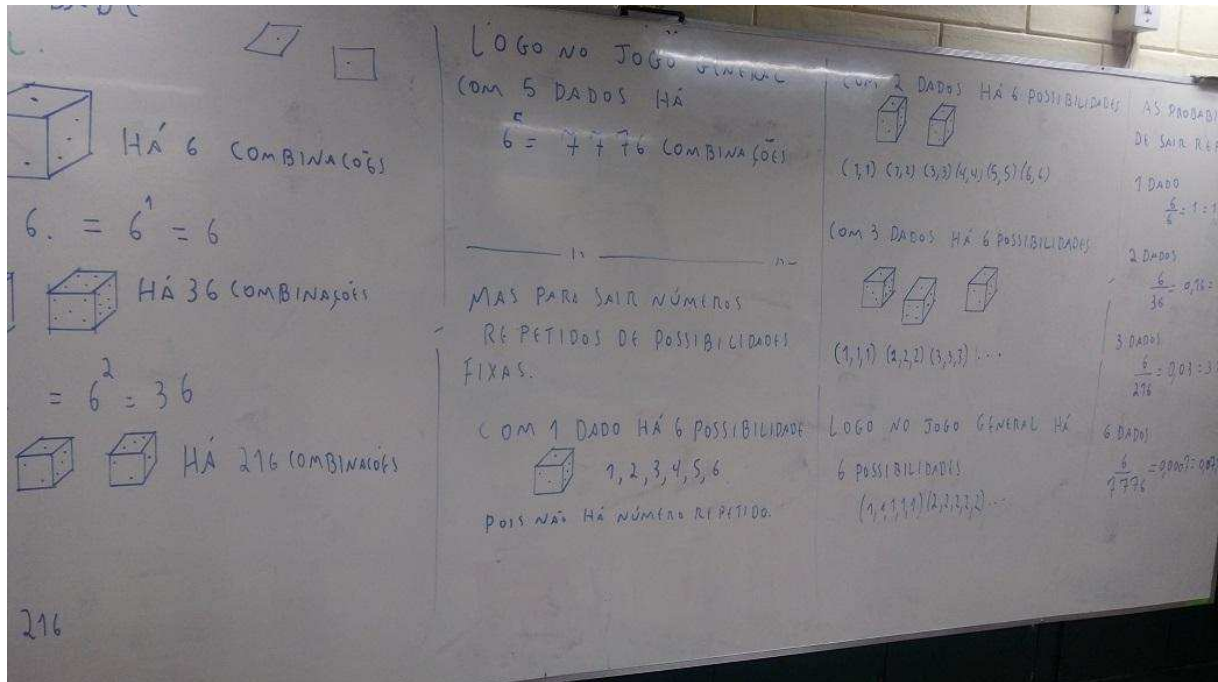 HÁ 6 COMBINACOẼS
6. = 6¹ = 6
HÁ 36 COMBINAÇOẼS
= 6² = 36
HÁ 216 COMBINACOẼS
216
LOGO NO JOGO GENERAL
COM 5 DADOS HÁ
6⁵ = 7776 COMBINAÇÕES
MAS PARA SAIR NÚMEROS
REPETIDOS DE POSSIBILIDADES
FIXAS.
COM 1 DADO HÁ 6 POSSIBILIDADE
1, 2, 3, 4, 5, 6
POIS NÃO HÁ NÚMERO REPETIDO.
COM 2 DADOS HÁ 6 POSSIBILIDADES
(1,1) (2,2) (3,3) (4,4) (5,5) (6,6)
COM 3 DADOS HÁ 6 POSSIBILIDADES
(1,1,1) (2,2,2) (3,3,3) ...
LOGO NO JOGO GENERAL HÁ
6 POSSIBILIDADES
(1,1,1,1,1) (2,2,2,2,2) ...
AS PROBABI
DE SAIR REP
1 DADO
6/6 = 1 = 1
2 DADOS
6/36 = 0,16 =
3 DADOS
6/216 = 0,03 = 3
6 DADOS
6/7776 = 0,0007 = 0,07